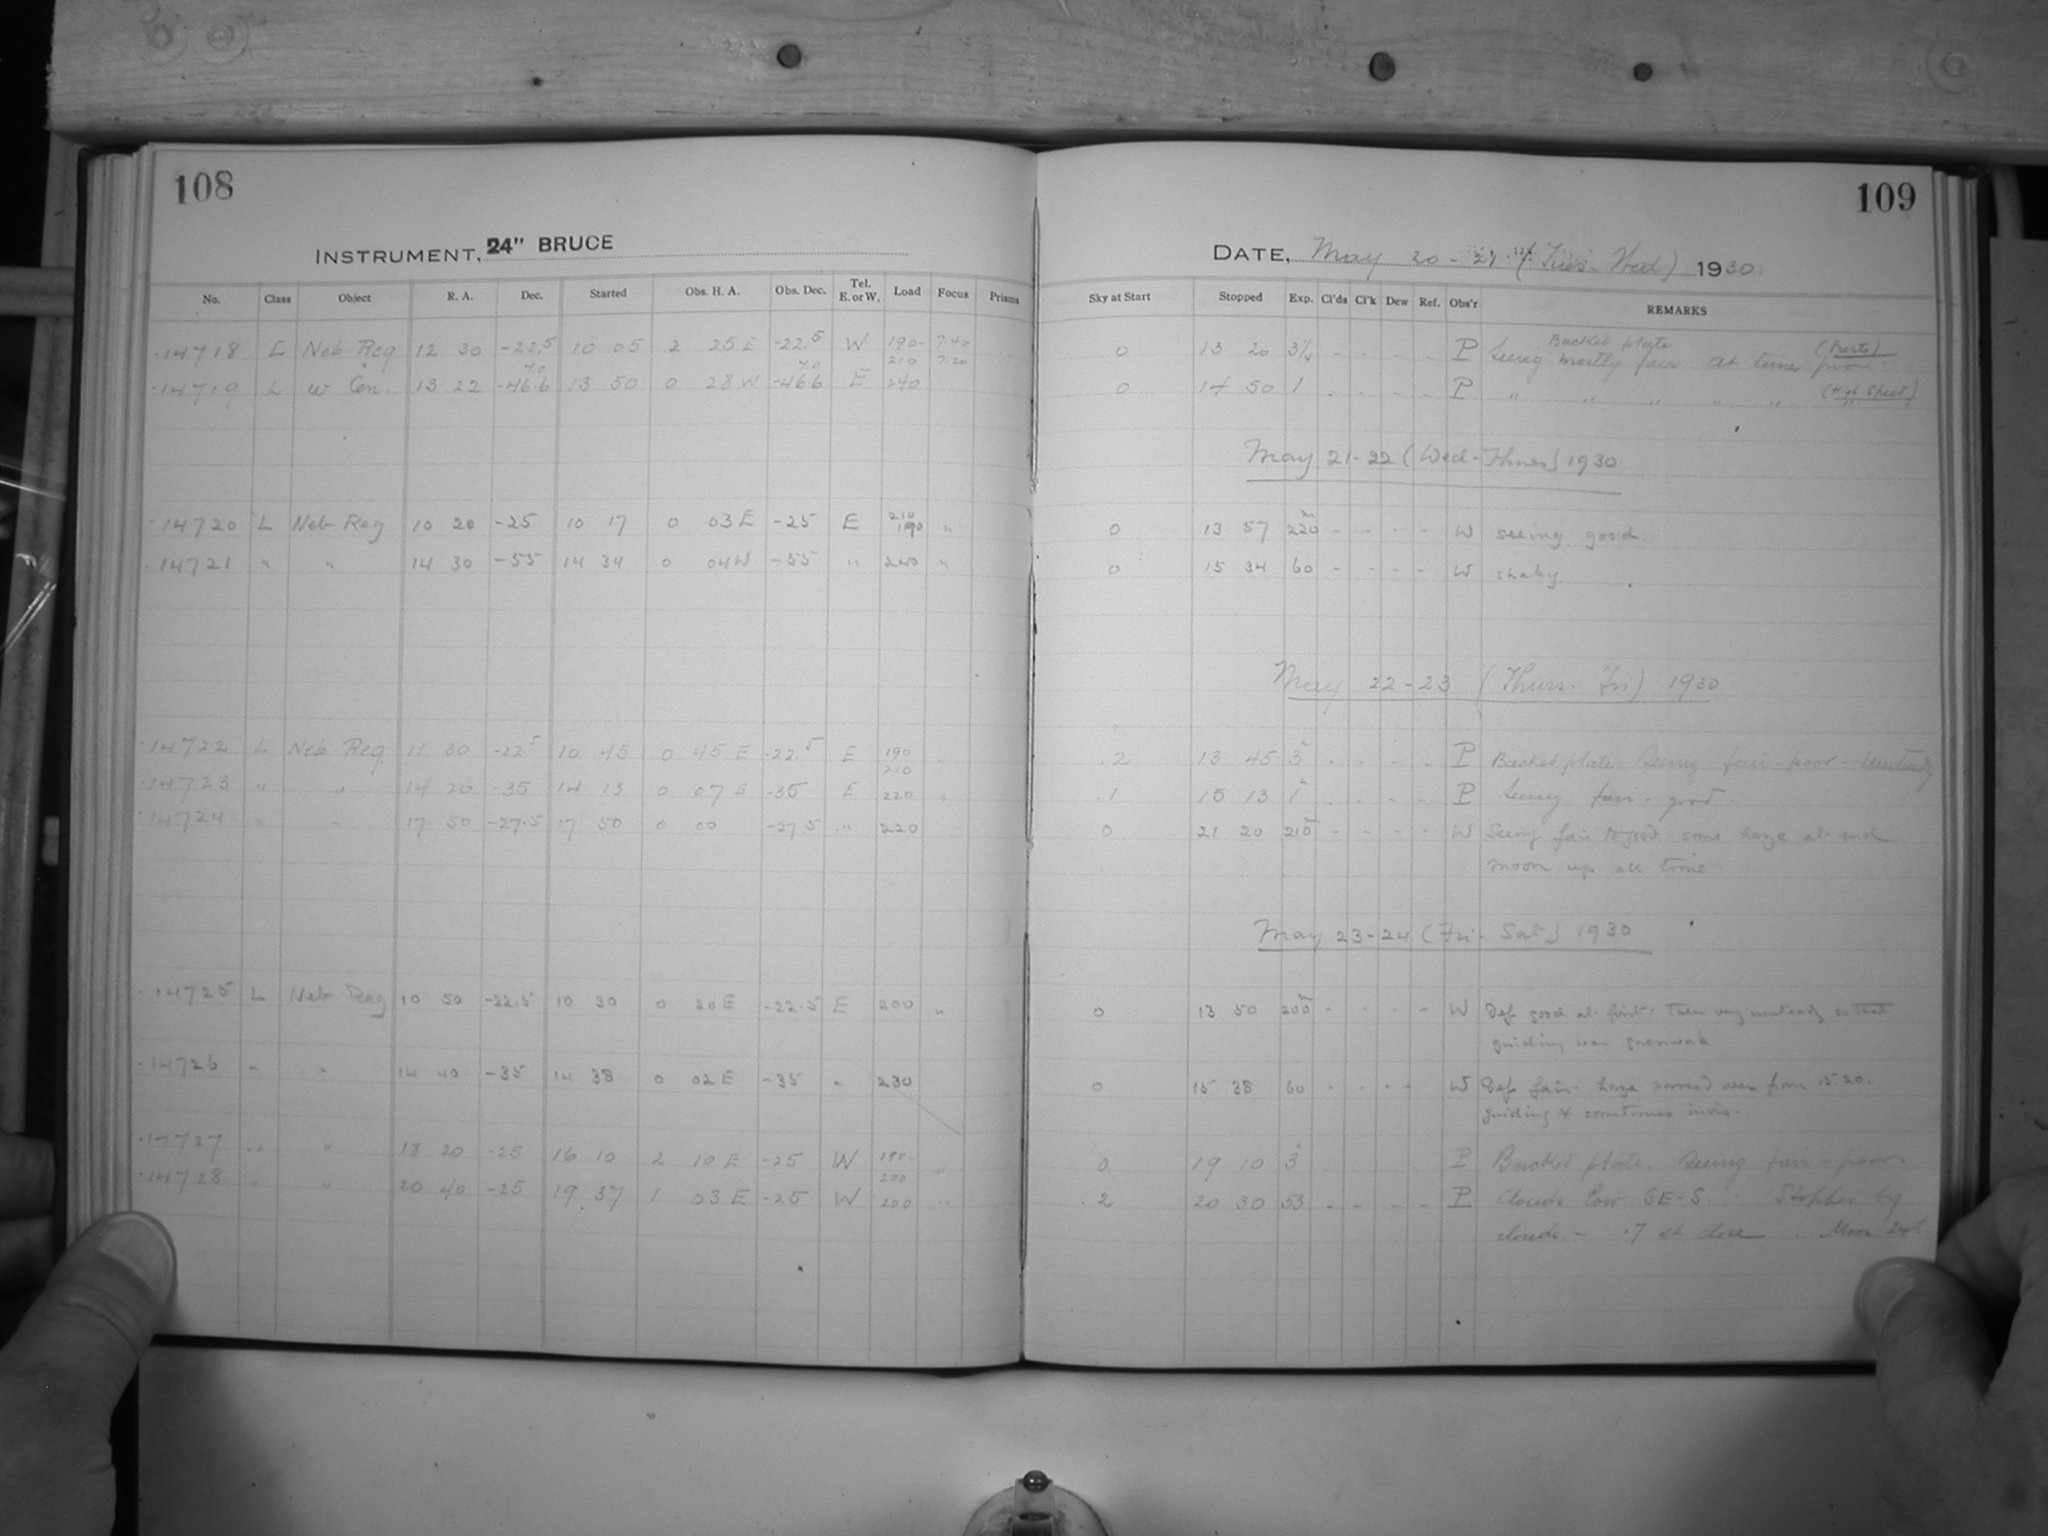 108
INSTRUMENT, 24" BRUCE
No. Class Object R. A. Dec. Started Obs. H. A. Obs. Dec. Tel. E. or W. Load Focus Prisms
14718 L Neb Reg 12 30 -22.5 10 05 2 25 E -22.5 W 190- 210 7.40 7.20
14719 L w Cen. 13 22 -46.6 13 50 0 28 W -46.6 E 240
14720 L Neb Reg 10 20 -25 10 17 0 03 E -25 E 210 190 "
14721 " " 14 30 -55 14 34 0 04 W -55 " 240 "
14722 L Neb Reg 11 30 -22.5 10 45 0 45 E -22.5 E 190 210
14723 " " 14 20 -35 14 13 0 07 E -35 E 220
14724 " " 17 50 -27.5 17 50 0 00 -27.5 " 220
14725 L Neb Reg 10 50 -22.5 10 30 0 20 E -22.5 E 200 "
14726 " " 14 40 -35 14 38 0 02 E -35 " 230
14727 " " 18 20 -25 16 10 2 10 E -25 W 190- 200 "
14728 " " 20 40 -25 19 37 1 03 E -25 W 200 "
109
DATE, May 20 - 21 (Tues. Wed) 1930.
Sky at Start Stopped Exp. Cl'ds Cl'k Dew Ref. Obs'r REMARKS
0 13 20 3¼ - - - - P Bucket plate (Presto)
Seeing mostly fair at times poor
0 14 50 1 - - - - P " " " " " (High Speed)
May 21-22 (Wed-Thurs) 1930
0 13 57 220m - - - - W seeing good
0 15 34 60 - - - - W shaky.
May 22-23 (Thurs. Fri) 1930
.2 13 45 3h - - - - P Bucket plate. Seeing fair-poor-
.1 15 13 1h - - - - P Seeing fair-good.
0 21 20 210m - - - - W Seeing fair to good some haze at end
moon up all time.
May 23-24 (Fri- Sat) 1930
0 13 50 200m - - - - W Def good at first. Then very unsteady so that
guiding was guesswork
0 15 38 60 - - - - W Def fair. haze over from 15:20.
guiding * sometimes invis.
0 19 10 3h P Bucket plate. Seeing fair-poor.
.2 20 30 53 - - - - P Clouds low SE-S. Stopped by
clouds - .7 at close. Moon